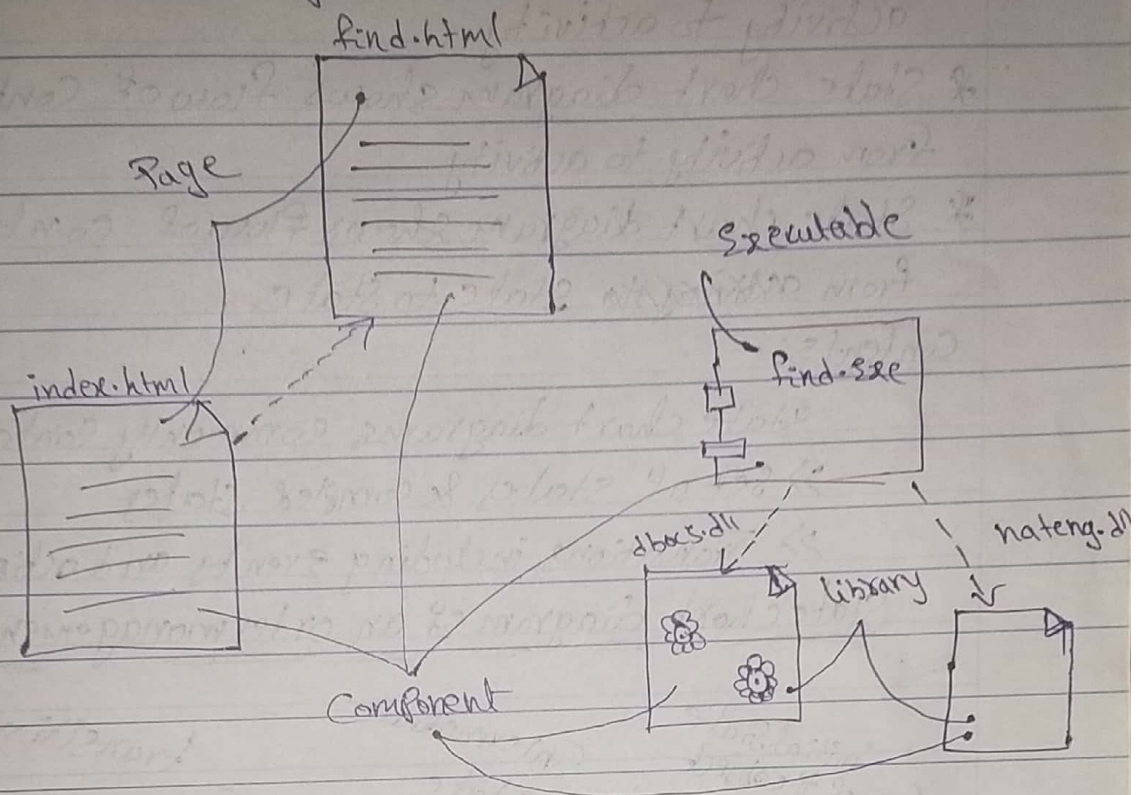 find.html
Page
Executable
find.exe
index.html
dbacs.dll
nateng.dll
library
Component